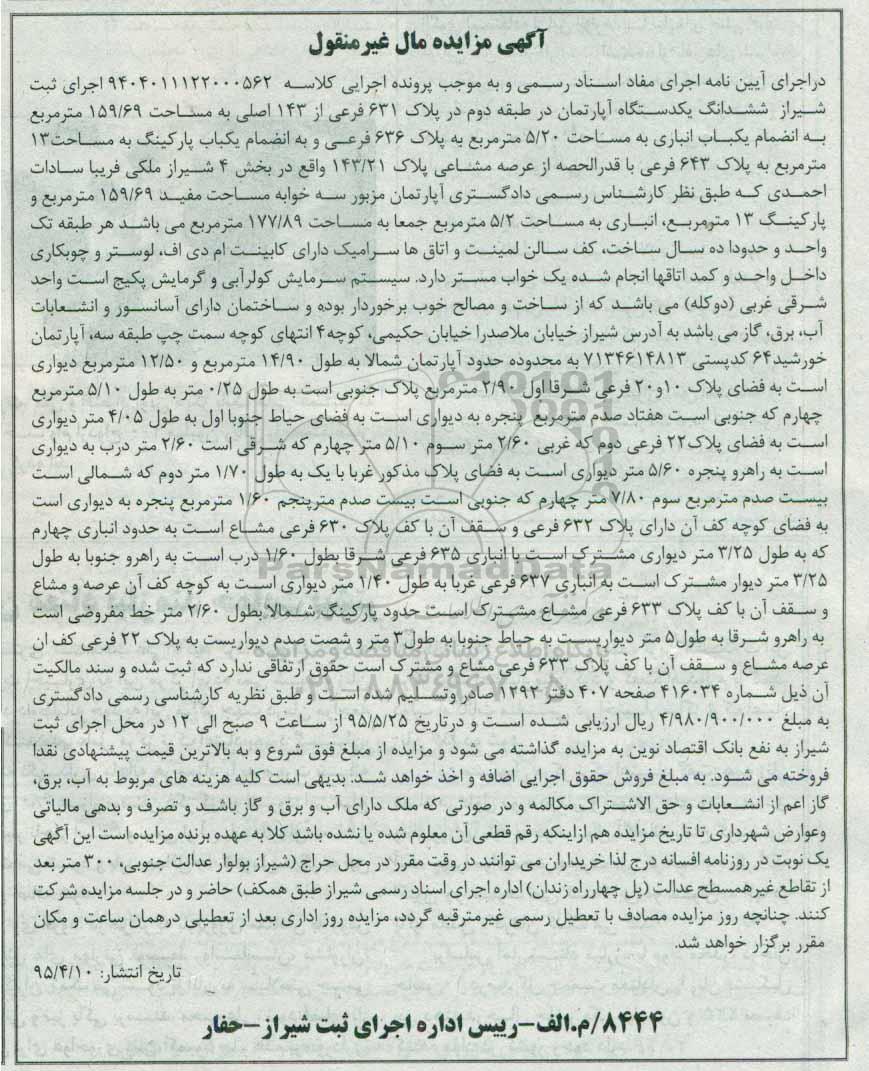 آگهی مزایده مال غیرمنقول
دراجرای آیین نامه اجرای مفاد اسناد رسمی و به موجب پرونده اجرایی کلاسه ۹۴۰۴۰۱۱۱۲۲۰۰۰۵۶۲ اجرای ثبت
شیراز ششدانگ یکدستگاه آپارتمان در طبقه دوم در پلاک ۶۳۱ فرعی از ۱۴۳ اصلی به مساحت ۱۵۹/۶۹ مترمربع
به انضمام یکباب انباری به مساحت ۵/۲۰ مترمربع یه پلاک ۶۳۶ فرعی و به انضمام یکباب پارکینگ به مساحت۱۳
مترمربع به پلاک ۶۴۳ فرعی با قدرالحصه از عرصه مشاعی پلاک ۱۴۳/۲۱ واقع در بخش ۴ شیراز ملکی فریبا سادات
احمدی که طبق نظر کارشناس رسمی دادگستری آپارتمان مزبور سه خوابه مساحت مفید ۱۵۹/۶۹ مترمربع و
پارکینگ ۱۳ مترمربع، انباری به مساحت ۵/۲ مترمربع جمعا به مساحت ۱۷۷/۸۹ مترمربع می باشد هر طبقه تک
واحد و حدودا ده سال ساخت، کف سالن لمینت و اتاق ها سرامیک دارای کابینت ام دی اف، لوستر و چوبکاری
داخل واحد و کمد اتاقها انجام شده یک خواب مستر دارد. سیستم سرمایش کولرآبی و گرمایش پکیج است واحد
شرقی غربی (دوکله) می باشد که از ساخت و مصالح خوب برخوردار بوده و ساختمان دارای آسانسور و انشعابات
آب، برق، گاز می باشد به آدرس شیراز خیابان ملاصدرا خیابان حکیمی، کوچه۴ انتهای کوچه سمت چپ طبقه سه، آپارتمان
خورشید۶۴ کدپستی ۷۱۳۴۶۱۴۸۱۳ به محدوده حدود آپارتمان شمالا به طول ۱۴/۹۰ مترمربع و ۱۲/۵۰ مترمربع دیواری
است به فضای پلاک ۱۰و۲۰ فرعی شرقا اول ۲/۹۰ مترمربع پلاک جنوبی است به طول ۰/۲۵ متر به طول ۵/۱۰ مترمربع
چهارم که جنوبی است هفتاد صدم مترمربع پنجره به دیواری است به فضای حیاط جنوبا اول به طول ۴/۰۵ متر دیواری
است به فضای پلاک۲۲ فرعی دوم که غربی ۲/۶۰ متر سوم ۵/۱۰ متر چهارم که شرقی است ۲/۶۰ متر درب به دیواری
است به راهرو پنجره ۵/۶۰ متر دیواری است به فضای پلاک مذکور غربا با یک به طول ۱/۷۰ متر دوم که شمالی است
بیست صدم مترمربع سوم ۷/۸۰ متر چهارم که جنوبی است بیست صدم مترپنجم ۱/۶۰ مترمربع پنجره به دیواری است
به فضای کوچه کف آن دارای پلاک ۶۳۲ فرعی و سقف آن با کف پلاک ۶۳۰ فرعی مشاع است به حدود انباری چهارم
که به طول ۳/۲۵ متر دیواری مشترک است با انباری ۶۳۵ فرعی شرقا بطول ۱/۶۰ درب است به راهرو جنوبا به طول
۳/۲۵ متر دیوار مشترک است به انباری ۶۳۷ فرعی غربا به طول ۱/۴۰ متر دیواری است به کوچه کف آن عرصه و مشاع
و سقف آن با کف پلاک ۶۳۳ فرعی مشاع مشترک است حدود پارکینگ شمالا بطول ۲/۶۰ متر خط مفروضی است
به راهرو شرقا به طول۵ متر دیواریست به حیاط جنوبا به طول۳ متر و شصت صدم دیواریست به پلاک ۲۲ فرعی کف ان
عرصه مشاع و سقف آن با کف پلاک ۶۳۳ فرعی مشاع و مشترک است حقوق ارتفاقی ندارد که ثبت شده و سند مالکیت
آن ذیل شماره ۴۱۶۰۳۴ صفحه ۴۰۷ دفتر ۱۲۹۳ صادر و تسلیم شده است و طبق نظریه کارشناسی رسمی دادگستری
به مبلغ ۴/۹۸۰/۹۰۰/۰۰۰ ریال ارزیابی شده است و درتاریخ ۹۵/۵/۲۵ از ساعت ۹ صبح الی ۱۲ در محل اجرای ثبت
شیراز به نفع بانک اقتصاد نوین به مزایده گذاشته می شود و مزایده از مبلغ فوق شروع و به بالاترین قیمت پیشنهادی نقدا
فروخته می شود. به مبلغ فروش حقوق اجرایی اضافه و اخذ خواهد شد. بدیهی است کلیه هزینه های مربوط به آب، برق،
گاز اعم از انشعابات و حق الاشتراک مکالمه و در صورتی که ملک دارای آب و برق و گاز باشد و تصرف و بدهی مالیاتی
وعوارض شهرداری تا تاریخ مزایده هم ازاینکه رقم قطعی آن معلوم شده یا نشده باشد کلا به عهده برنده مزایده است این آگهی
یک نوبت در روزنامه افسانه درج لذا خریداران می توانند در وقت مقرر در محل حراج (شیراز بولوار عدالت جنوبی، ۳۰۰ متر بعد
از تقاطع غیرهمسطح عدالت (پل چهارراه زندان) اداره اجرای اسناد رسمی شیراز طبق همکف) حاضر و در جلسه مزایده شرکت
کنند. چنانچه روز مزایده مصادف با تعطیل رسمی غیرمترقبه گردد، مزایده روز اداری بعد از تعطیلی درهمان ساعت و مکان
مقرر برگزار خواهد شد.
تاریخ انتشار: ۹۵/۴/۱۰
۸۴۴۴/م.الف-رییس اداره اجرای ثبت شیراز-حفار
ParsNamadData